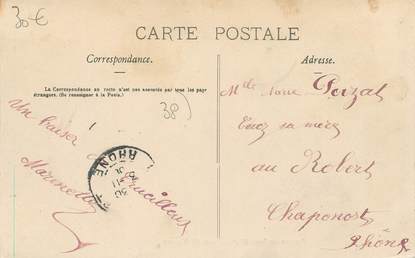 30 €
CARTE POSTALE
Correspondance.
Adresse.
La Correspondance au recto n'est pas acceptée par tous les pays
étrangers. (Se renseigner à la Poste.)
38)
Un baiser !
Marinette
RHONE
Mlle Poizat
Chez sa mère
au Robert
Chaponost
Rhône